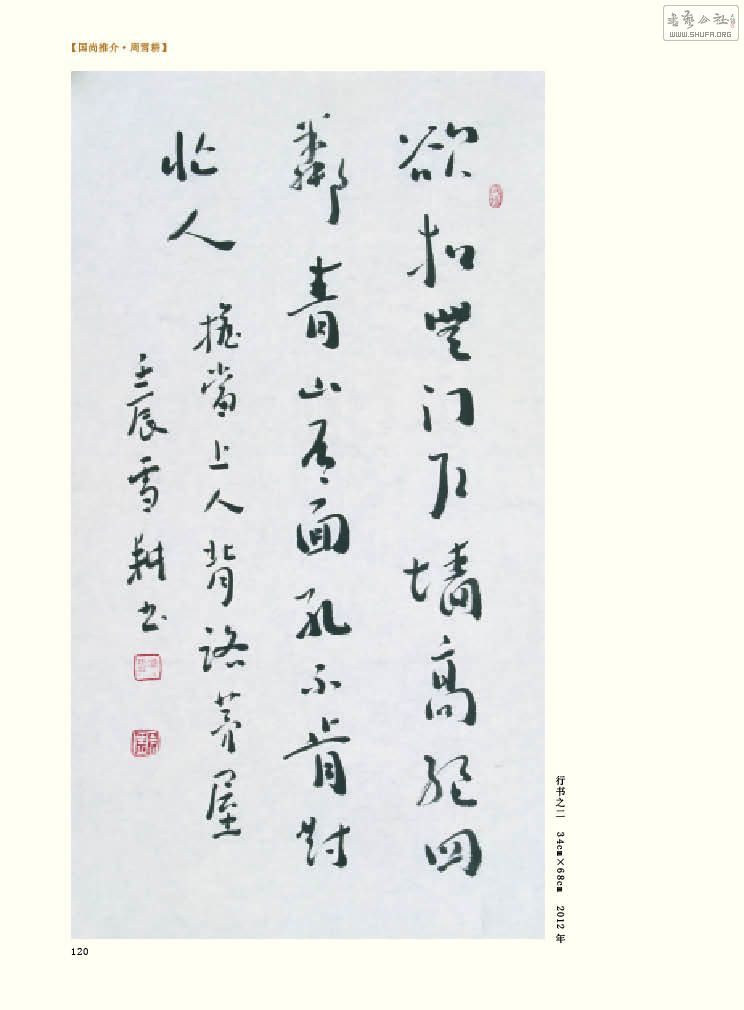 書藝公社
WWW.SHUFA.ORG
【国尚推介·周雪耕】
欲扣無门墙高絕四
鄰青山有面孔不肯對
忙人
擔當上人背路茅屋
壬辰雪耕书
行书之二 34cm×68cm 2012年
120